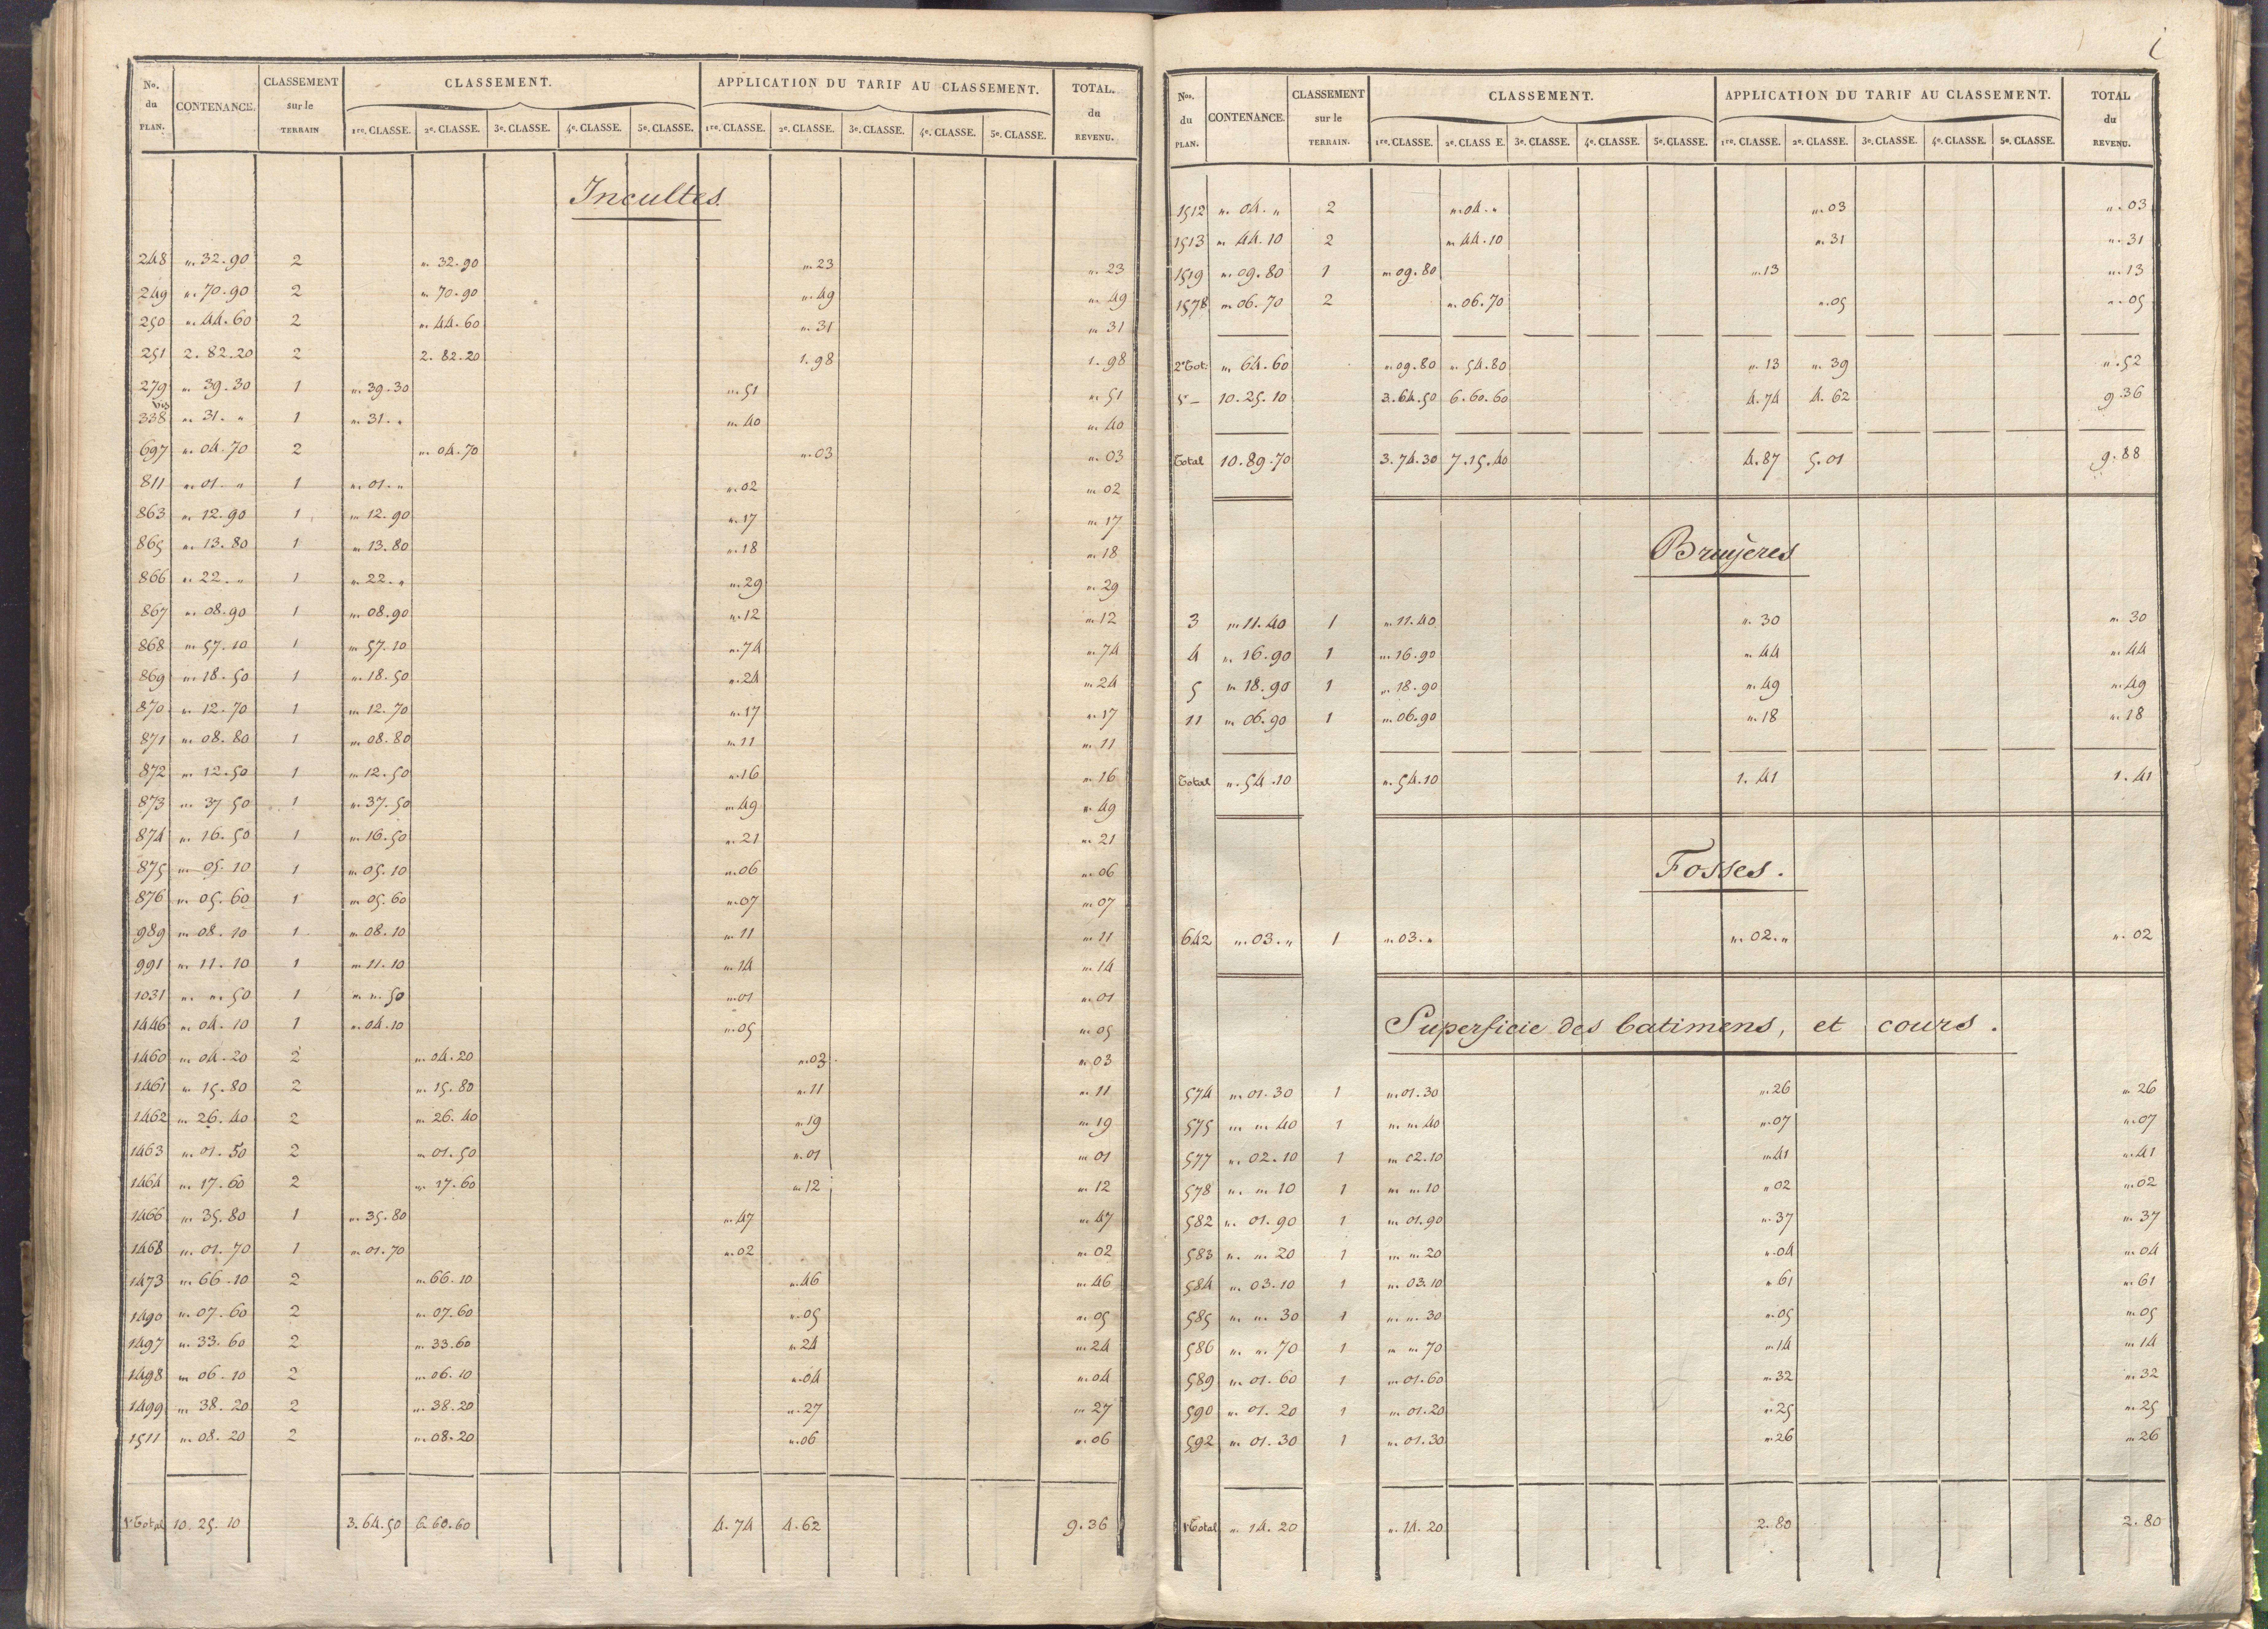 No. du PLAN. CONTENANCE. CLASSEMENT sur le TERRAIN CLASSEMENT. APPLICATION DU TARIF AU CLASSEMENT. TOTAL. du REVENU.
1re. CLASSE. 2e. CLASSE. 3e. CLASSE. 4e. CLASSE. 5e. CLASSE. 1re. CLASSE. 2e. CLASSE. 3e. CLASSE. 4e. CLASSE. 5e. CLASSE.
Incultes.
248 „. 32.90 2 „. 32.90 „. 23 „. 23
249 „. 70.90 2 „. 70.90 „. 49 „. 49
250 „. 44.60 2 „. 44.60 „. 31 „. 31
251 2. 82.20 2 2. 82.20 1.98 1.98
279 „. 39.30 1 „. 39.30 „. 51 „. 51
338 bis „. 31. „ 1 „. 31. „ „. 40 „. 40
697 „. 04.70 2 „. 04.70 „. 03 „. 03
811 „. 01. „ 1 „. 01. „ „. 02 „. 02
863 „. 12.90 1 „. 12.90 „. 17 „. 17
865 „. 13.80 1 „. 13.80 „. 18 „. 18
866 „. 22. „ 1 „. 22. „ „. 29 „. 29
867 „. 08.90 1 „. 08.90 „. 12 „. 12
868 „. 57.10 1 „. 57.10 „. 74 „. 74
869 „. 18.50 1 „. 18.50 „. 24 „. 24
870 „. 12.70 1 „. 12.70 „. 17 „. 17
871 „. 08.80 1 „. 08.80 „. 11 „. 11
872 „. 12.50 1 „. 12.50 „. 16 „. 16
873 „. 37 50 1 „. 37.50 „. 49 „. 49
874 „. 16.50 1 „. 16.50 „. 21 „. 21
875 „. 05.10 1 „. 05.10 „. 06 „. 06
876 „. 05.60 1 „. 05.60 „. 07 „. 07
989 „. 08.10 1 „. 08.10 „. 11 „. 11
991 „. 11.10 1 „. 11.10 „. 14 „. 14
1031 „. „. 50 1 „. „. 50 „. 01 „. 01
1446 „. 04.10 1 „. 04.10 „. 05 „. 05
1460 „. 04.20 2 „. 04.20 „. 03 „. 03
1461 „. 15.80 2 „. 15.80 „. 11 „. 11
1462 „. 26.40 2 „. 26.40 „. 19 „. 19
1463 „. 01.50 2 „. 01.50 „. 01 „. 01
1464 „. 17.60 2 „. 17.60 „. 12 „. 12
1466 „. 35.80 1 „. 35.80 „. 47 „. 47
1468 „. 01.70 1 „. 01.70 „. 02 „. 02
1473 „. 66.10 2 „. 66.10 „. 46 „. 46
1490 „. 07.60 2 „. 07.60 „. 05 „. 05
1497 „. 33.60 2 „. 33.60 „. 24 „. 24
1498 „. 06.10 2 „. 06.10 „. 04 „. 04
1499 „. 38.20 2 „. 38.20 „. 27 „. 27
1511 „. 08.20 2 „. 08.20 „. 06 „. 06
1r Total 10. 25. 10 3. 64. 50 6. 60. 60 4. 74 4. 62 9. 36
Nos. du PLAN. CONTENANCE. CLASSEMENT sur le TERRAIN. CLASSEMENT. APPLICATION DU TARIF AU CLASSEMENT. TOTAL du REVENU.
1re. CLASSE. 2e. CLASS E. 3e. CLASSE. 4e. CLASSE. 5e. CLASSE. 1re. CLASSE. 2e. CLASSE. 3e. CLASSE. 4e. CLASSE. 5e. CLASSE.
1512 „. 04. „ 2 „. 04. „ „. 03 „. 03
1513 „. 44.10 2 „. 44.10 „. 31 „. 31
1519 „. 09.80 1 „. 09.80 „. 13 „. 13
1578 „. 06.70 2 „. 06.70 „. 05 „. 05
2e Tot: „. 64.60 „. 09.80 „. 54.80 „. 13 „. 39 „. 52
1r — 10.25.10 3.64.50 6.60.60 4.74 4.62 9.36
Total 10.89.70 3.74.30 7.15.40 4.87 5.01 9.88
Bruyeres
3 „. 11.40 1 „. 11.40 „. 30 „. 30
4 „. 16.90 1 „. 16.90 „. 44 „. 44
5 „. 18.90 1 „. 18.90 „. 49 „. 49
11 „. 06.90 1 „. 06.90 „. 18 „. 18
Total „. 54.10 „. 54.10 1.41 1.41
Fosses.
642 „. 03. „ 1 „. 03. „ „. 02. „ „. 02
Superficie des batimens, et cours.
574 „. 01.30 1 „. 01.30 „. 26 „. 26
575 „. „. 40 1 „. „. 40 „. 07 „. 07
577 „. 02.10 1 „. 02.10 „. 41 „. 41
578 „. „. 10 1 „. „. 10 „. 02 „. 02
582 „. 01.90 1 „. 01.90 „. 37 „. 37
583 „. „. 20 1 „. „. 20 „. 04 „. 04
584 „. 03.10 1 „. 03.10 „. 61 „. 61
585 „. „. 30 1 „. „. 30 „. 05 „. 05
586 „. „. 70 1 „. „. 70 „. 14 „. 14
589 „. 01.60 1 „. 01.60 „. 32 „. 32
590 „. 01.20 1 „. 01.20 „. 25 „. 25
592 „. 01.30 1 „. 01.30 „. 26 „. 26
1r Total „. 14.20 „. 14.20 2.80 2.80